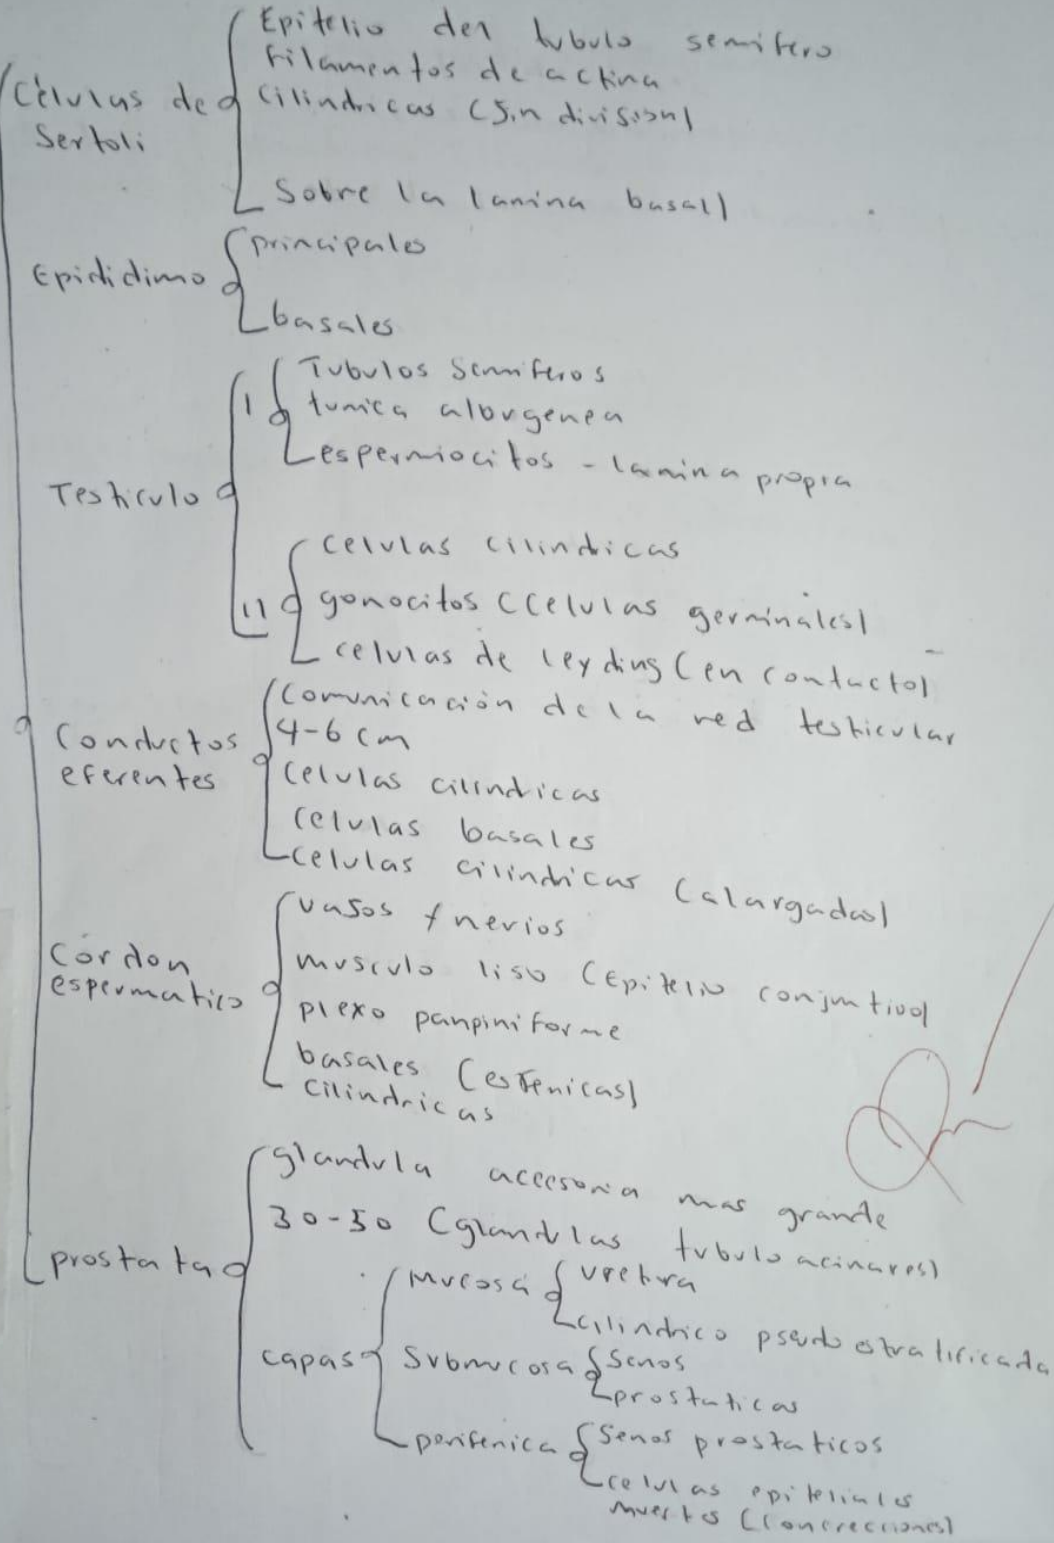 Epitelio del tubulo semifero
Filamentos de actina
Células de
Sertoli
Cilindricas (Sin division)
Sobre la lamina basal)
Epididimo
principales
basales
Testiculo
I
Tubulos Semiferos
tunica alburgenea
espermiocitos - lamina propia
II
celulas cilindricas
gonocitos (Celulas germinales)
celulas de leyding (en contacto)
Conductos
eferentes
Comunicación de la red testicular
4-6 cm
celulas cilindricas
celulas basales
celulas cilindricas (alargadas)
Cordon
espermatico
vasos y nervios
musculo liso (Epitelio conjuntivo)
plexo panpiniforme
basales (esfenicas)
cilindricas
prostata
glandula accesoria mas grande
30-50 (glandulas tubulo acinares)
capas
Mucosa
uretura
cilindrico pseudoestratificada
Submucosa
Senos
prostaticas
periferica
Senos prostaticos
celulas epiteliales
muertas (Concreciones)